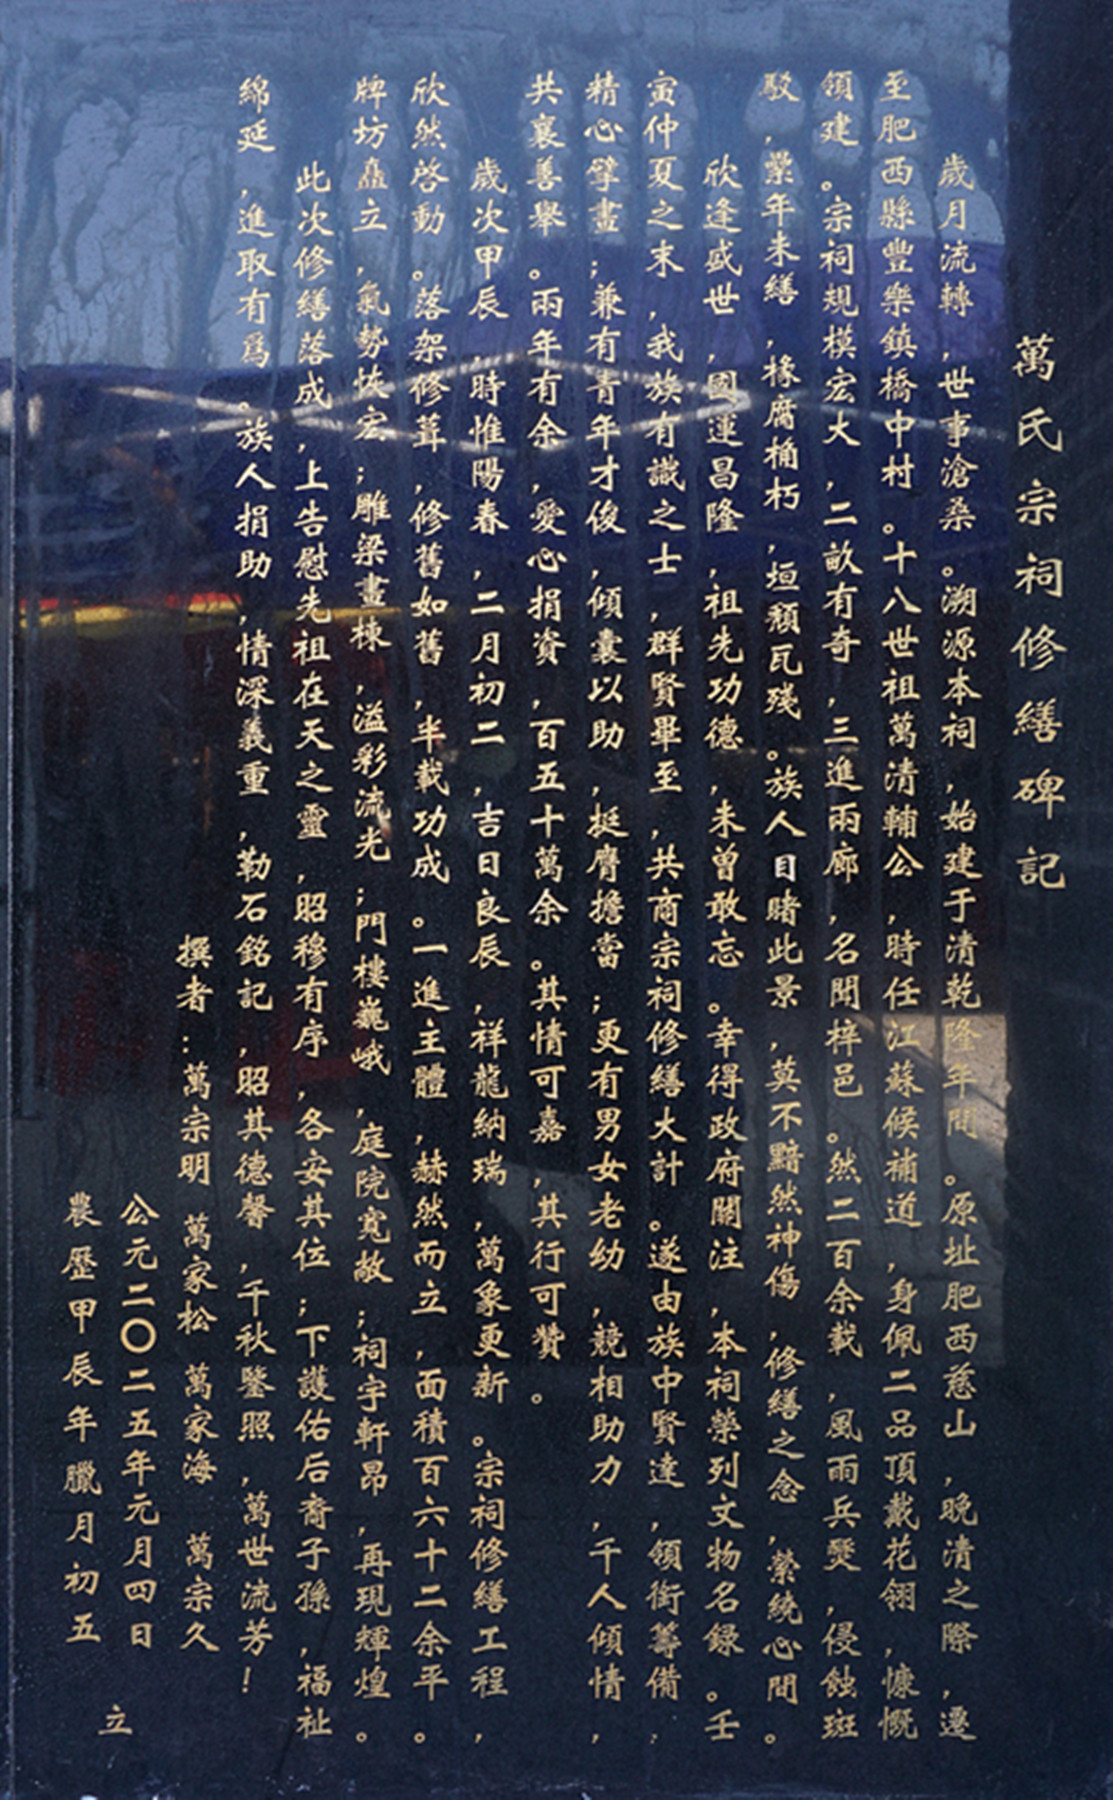 萬氏宗祠修繕碑記
歲月流轉，世事滄桑。溯源本祠，始建于清乾隆年間。原址肥西慈山，晚清之際，遷
至肥西縣豐樂鎮橋中村。十八世祖萬清輔公，時任江蘇候補道，身佩二品頂戴花翎，慷慨
領建。宗祠規模宏大，二畝有奇，三進兩廊，名聞梓邑。然二百余載，風雨兵燹，侵蝕斑
駁，纍年未繕，椽腐桷朽，垣頹瓦殘。族人目睹此景，莫不黯然神傷，修繕之念，縈繞心間。
欣逢盛世，國運昌隆，祖先功德，未曾敢忘。幸得政府關注，本祠榮列文物名錄。壬
寅仲夏之末，我族有識之士，群賢畢至，共商宗祠修繕大計。遂由族中賢達，領銜籌備，
精心擘畫；兼有青年才俊，傾囊以助，挺膺擔當；更有男女老幼，競相助力，千人傾情，
共襄善舉。兩年有余，愛心捐資，百五十萬余。其情可嘉，其行可贊。
歲次甲辰，時惟陽春，二月初二，吉日良辰，祥龍納瑞，萬象更新。宗祠修繕工程，
欣然啓動。落架修葺，修舊如舊，半載功成。一進主體，赫然而立，面積百六十二余平。
牌坊矗立，氣勢恢宏；雕梁畫棟，溢彩流光；門樓巍峨，庭院寬敞；祠宇軒昂，再現輝煌。
此次修繕落成，上告慰先祖在天之靈，昭穆有序，各安其位；下護佑后裔子孫，福祉
綿延，進取有爲。族人捐助，情深義重，勒石銘記，昭其德馨，千秋鑒照，萬世流芳！
撰者：萬宗明 萬家松 萬家海 萬宗久
公元二〇二五年元月四日
農歷甲辰年臘月初五
立